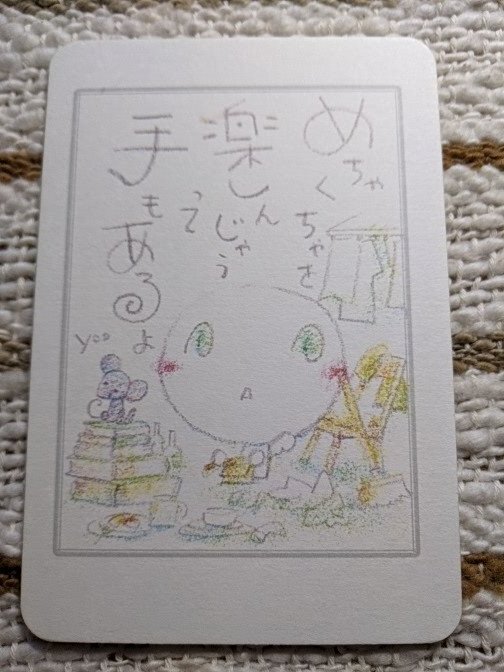 めちゃくちゃさ
楽しんじゃう
って
手もあるよ
yoo